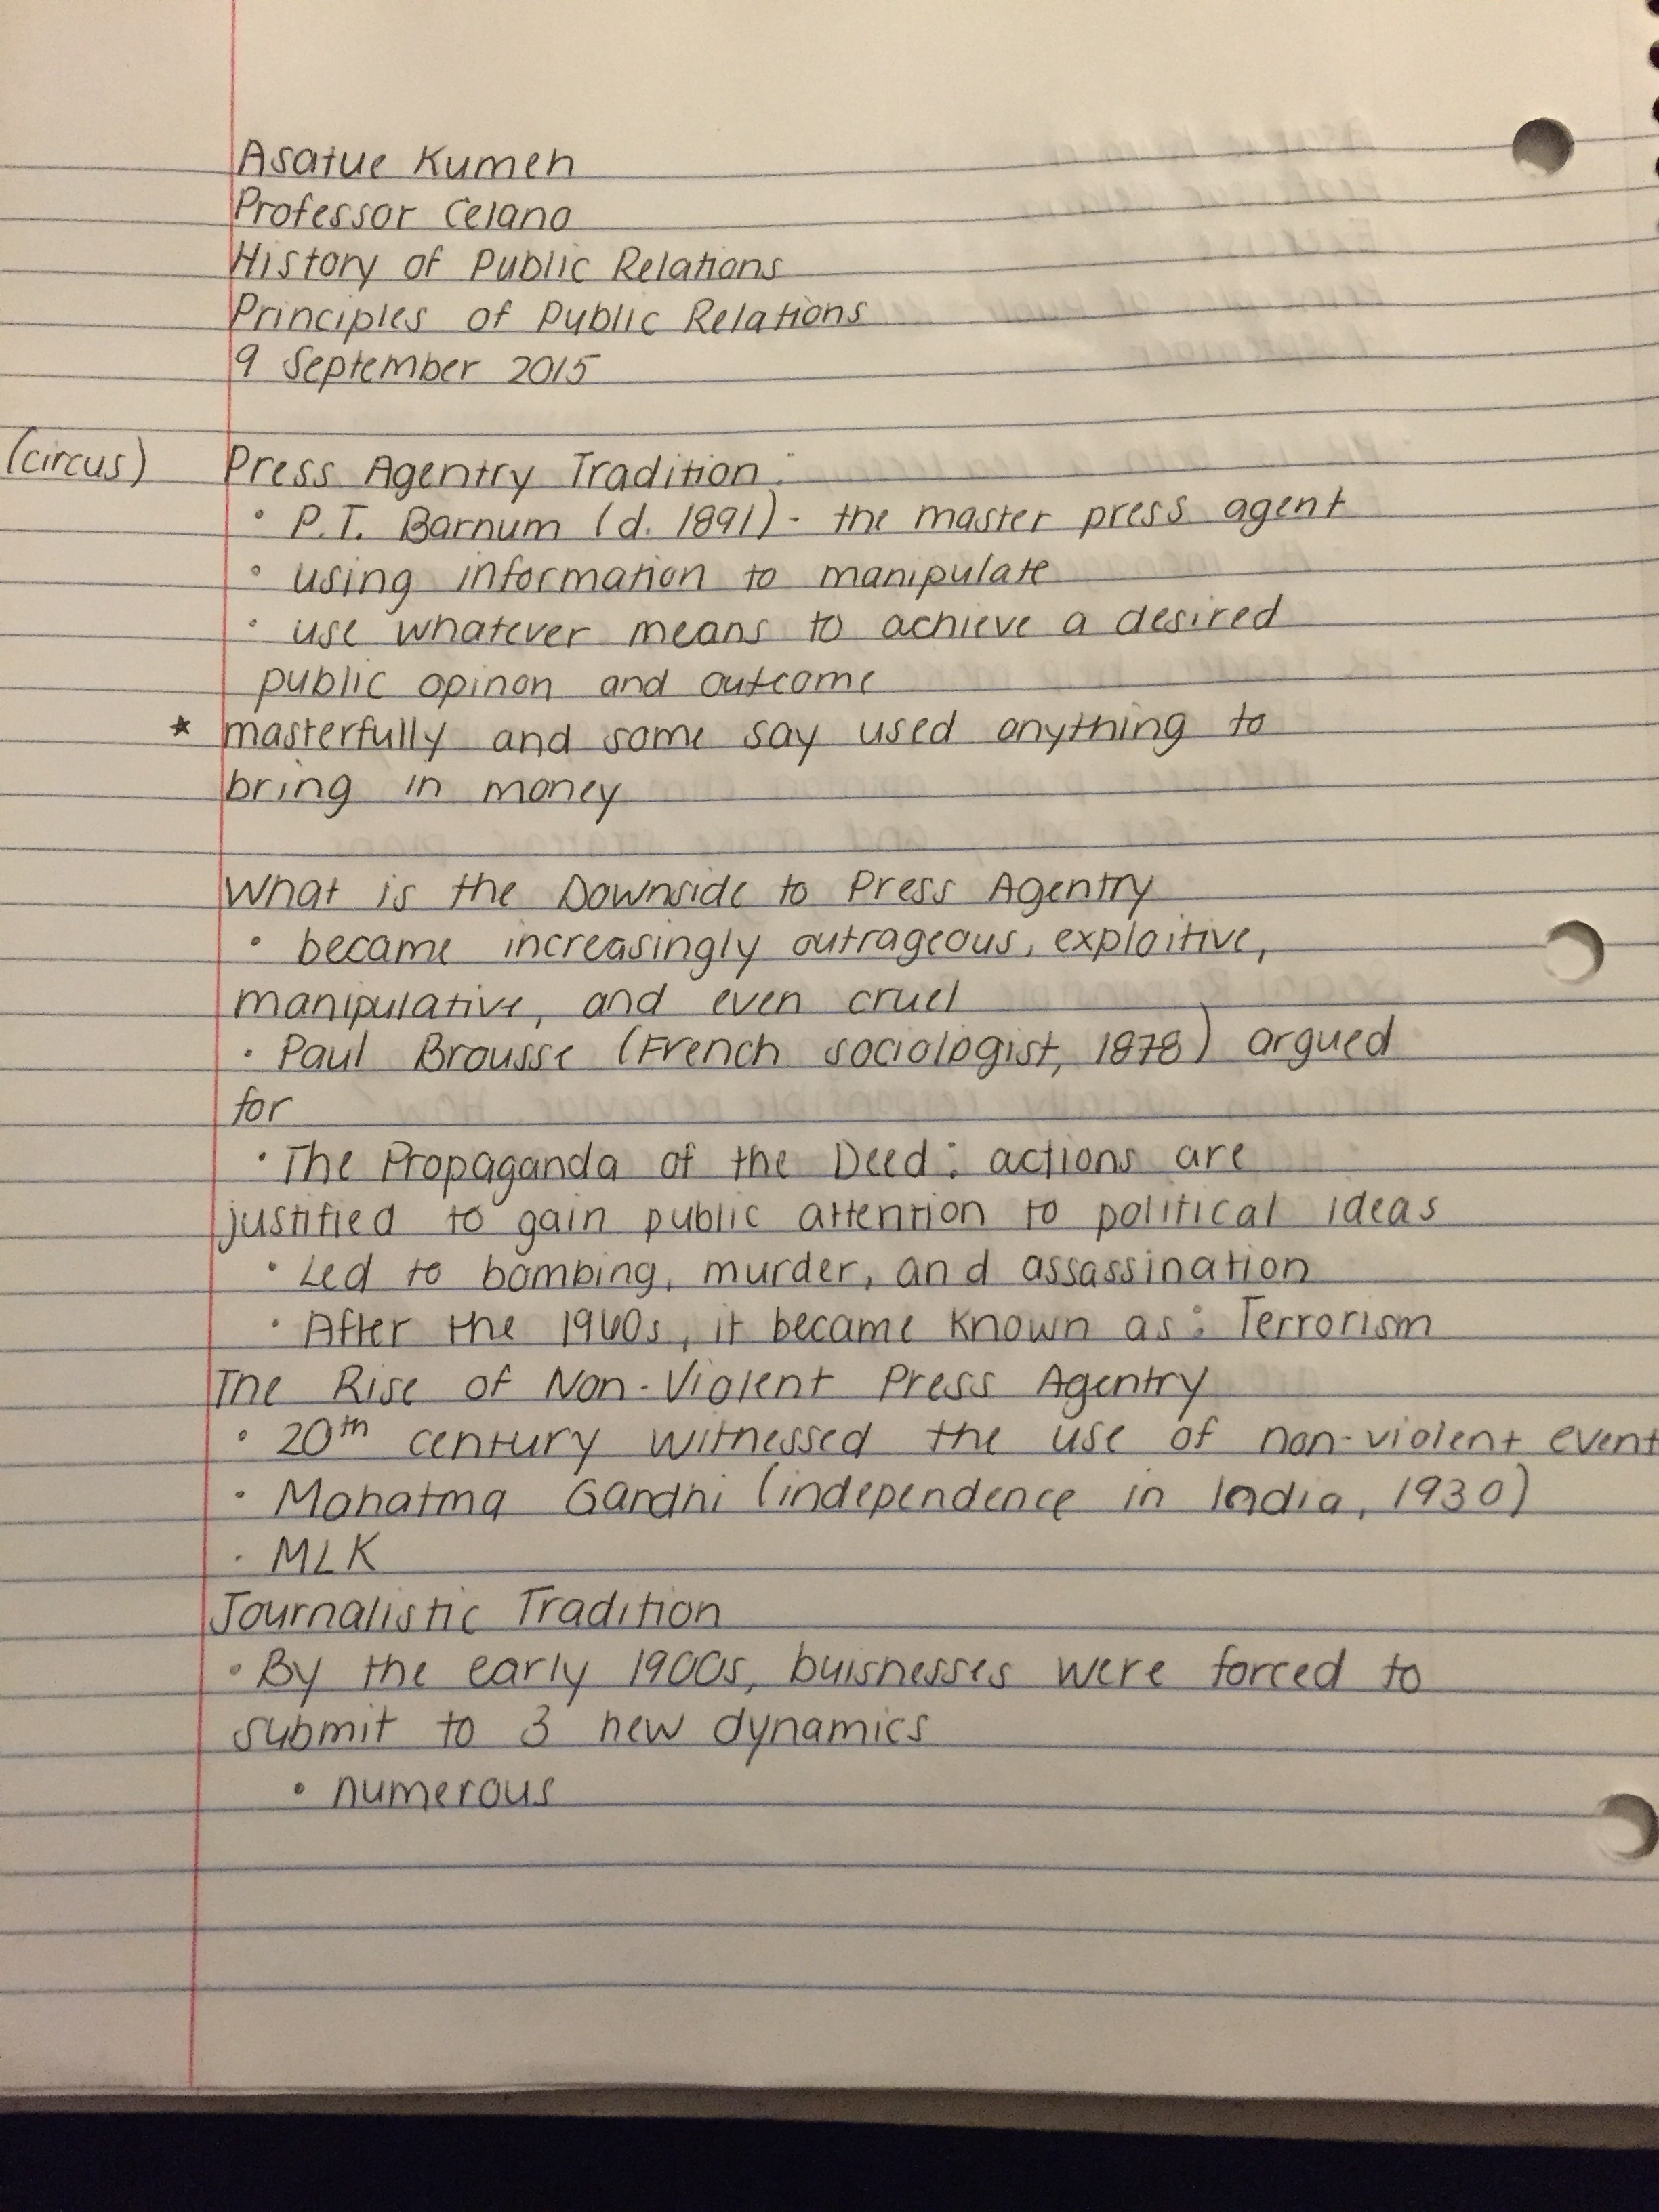 Asatue Kumeh
Professor Celano
History of Public Relations
Principles of Public Relations
9 September 2015
(circus) Press Agentry Tradition:
• P.T. Barnum (d. 1891) - the master press agent
• using information to manipulate
• use whatever means to achieve a desired
public opinon and outcome
* masterfully and some say used anything to
bring in money
What is the Downside to Press Agentry
• became increasingly outrageous, exploitive,
manipulative, and even cruel
• Paul Brousse (French sociologist, 1878) argued
for
• The Propaganda of the Deed: actions are
justified to gain public attention to political ideas
• Led to bombing, murder, and assassination
• After the 1960s, it became known as: Terrorism
The Rise of Non-Violent Press Agentry
• 20th century witnessed the use of non-violent event
• Mahatma Gandhi (independence in India, 1930)
• MLK
Journalistic Tradition
• By the early 1900s, buisnesses were forced to
submit to 3 new dynamics
• numerous